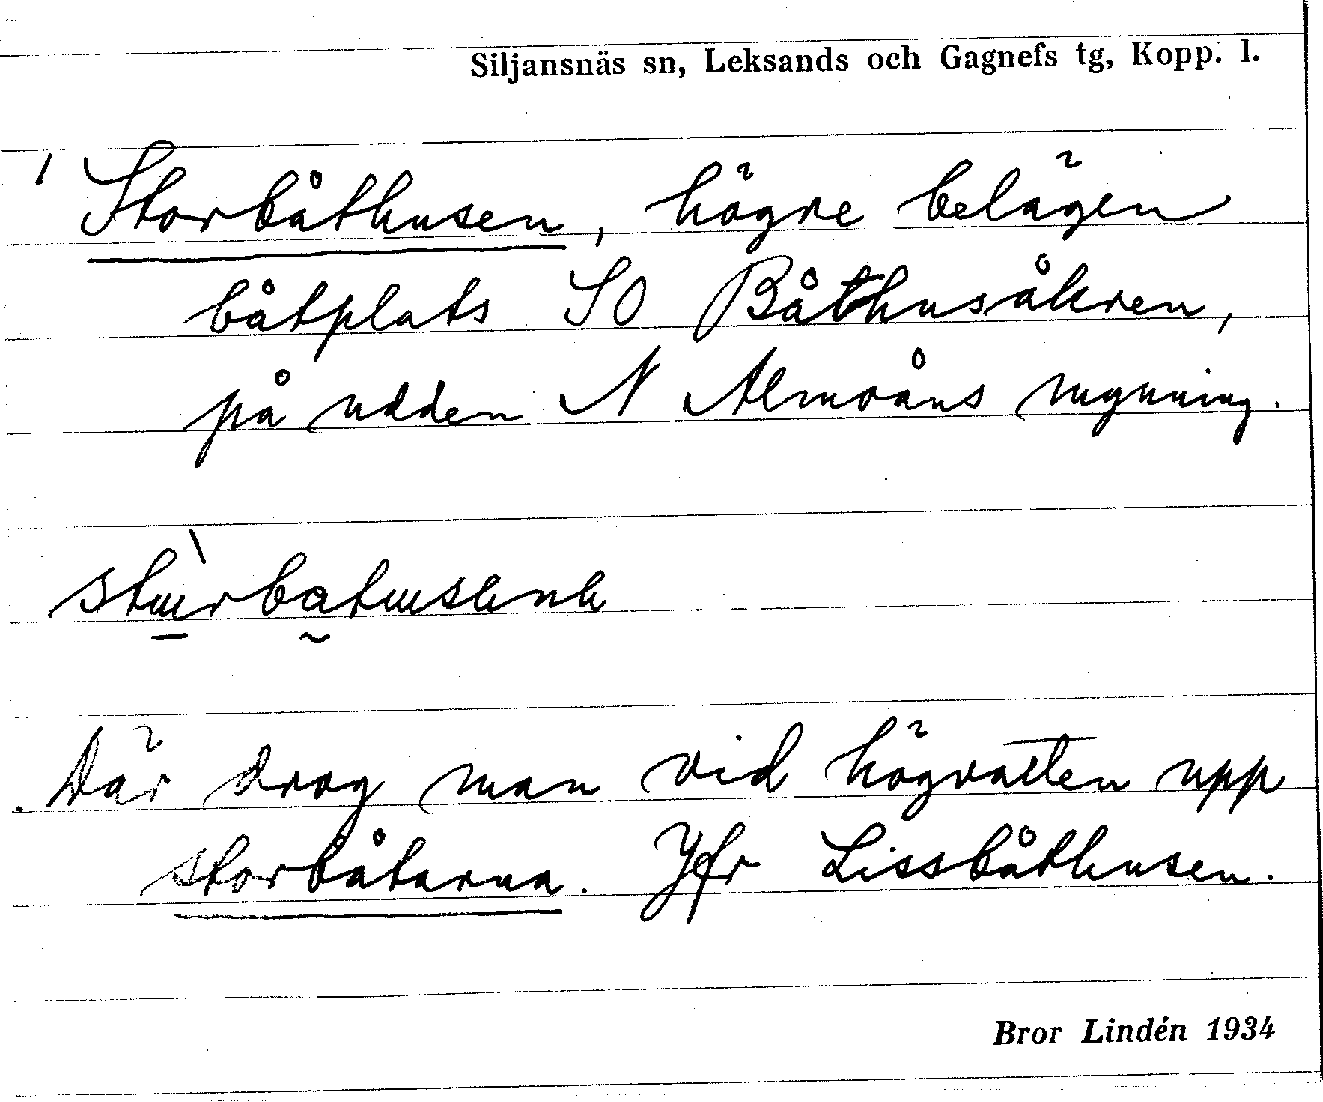 Siljansnäs sn, Leksands och Gagnefs tg, Kopp. l.
1 Storbåthusen, högre belägen
båtplats SO Båthusåkren,
på udden N Almoåns mynning.
Där drog man vid högvatten upp
storbåtarna. Jfr Lissbåthusen.
Bror Lindén 1934